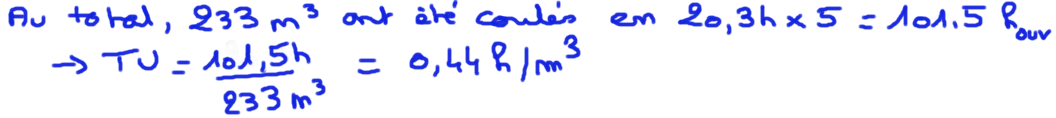 Au total, 233 m³ ont été coulés en 20,3h x 5 = 101.5 h_ouv
→ TU = 101,5h / 233 m³ = 0,44 h/m³